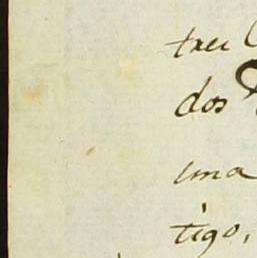 tres
dos
uma
tigo,